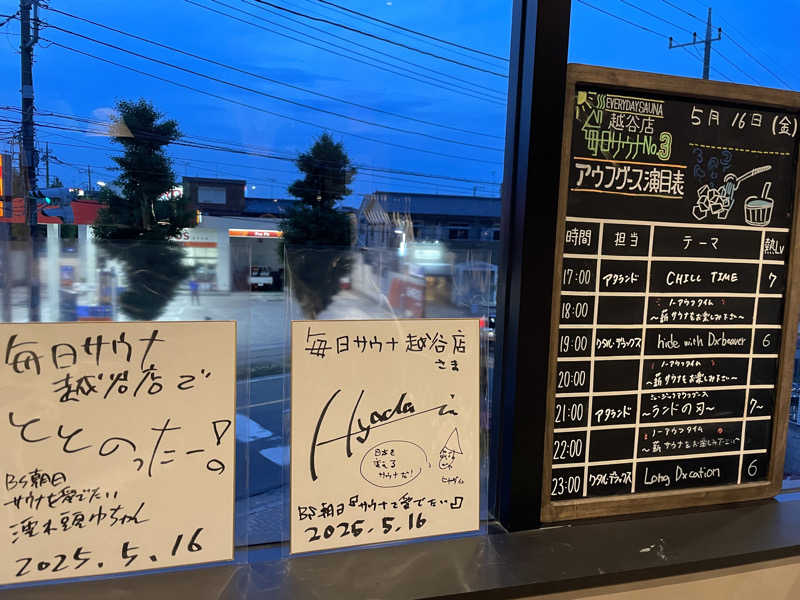 毎日サウナ
越谷店で
ととのったー!
BS朝日
サウナを愛でたい
2025.5.16
毎日サウナ越谷店
さま
Hyada
日本を
変える
サウナだ!
BS朝日 サウナを愛でたい
2025.5.16
EVERYDAY SAUNA
越谷店
毎日サウナ No.3
5月16日(金)
アウフグース演目表
時間 担当 テーマ 熱Lv
17:00 アタランド CHILL TIME 7
18:00 ノーアウフタイム
〜薪サウナをお楽しみ下さい〜
19:00 クタル・デラックス hide with Dxbeaver 6
20:00 ノーアウフタイム
〜薪サウナをお楽しみ下さい〜
21:00 アタランド ミュージックアウフグース
〜ランドの刃〜 7~
22:00 ノーアウフタイム
〜薪サウナをお楽しみ下さい〜
23:00 クタル・デラックス Long Dxcation 6